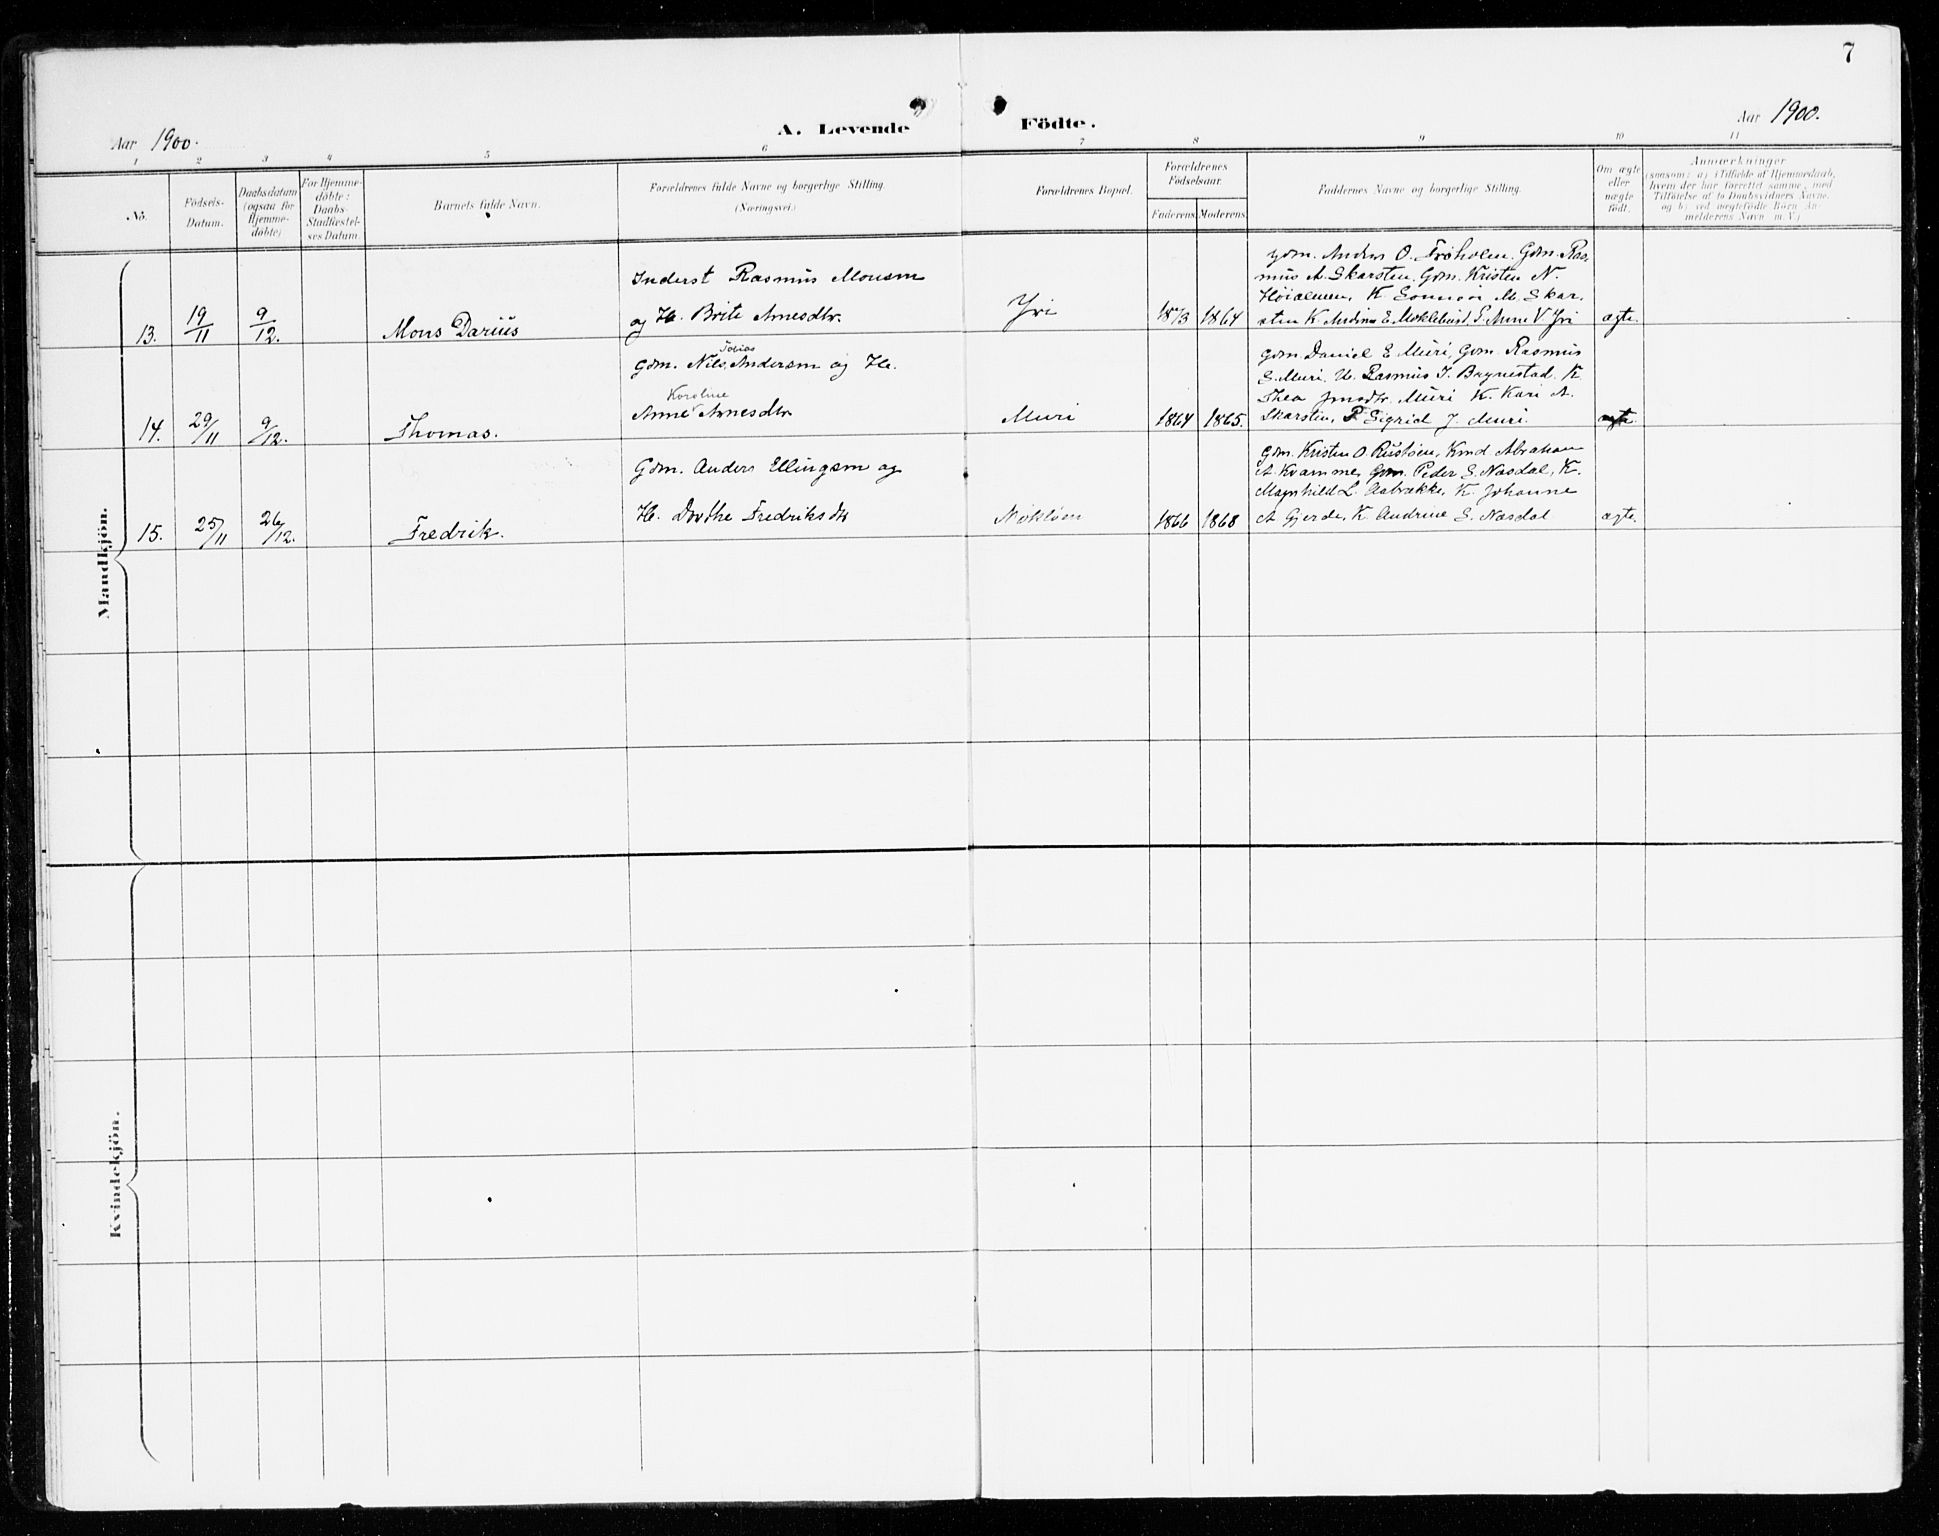 7
Aar 1900.
A. Levende Födte.
Aar 1900.
1 2 3 4 5 6 7 8 9 10 11
No.
Födsels-
Datum.
Daabsdatum
(ogsaa för
Hjemme-
döbte)
For Hjemme-
döbte:
Daabs-
Stadfæstel-
ses Datum.
Barnets fulde Navn.
Forældrenes fulde Navne og borgerlige Stilling.
(Næringsvei.)
Forældrenes Bopæl.
Forældrenes
Födselsaar.
Faderens.
Moderens.
Faddernes Navne og borgerlige Stilling.
Om ægte
eller
uægte
födt.
Anmærkninger
(saasom: a) i Tilfælde af Hjemmedaab,
hvem der har forrettet samme, med
Tilföielse af to Daabsvidners Navne,
og b) ved uægtefödte Börn An-
melderens Navn m. V.)
Mandkjön.
13.
19/11
9/12.
Mons Darius
Inderst Rasmus Monsen
og H. Brite Arnesdtr.
Yri
1873
1864
Gdm. Anders O. Frøholen, Gdm. Ras-
mus A. Skarsten, Gdm. Kristen N.
K. M. Skar-
sten K. E. Myklebust, P. Anne V. Yri
ægte.
14.
29/11
9/12.
Thomas.
Tobias
Gdm. Nils Andersen og H.
Karoline
Anne Arnesdtr
Muri
1864
1865.
Gdm. Daniel E. Muri, Gdm. Rasmus
E. Muri, U. Rasmus J. Brynestad, K.
Thea Jonsdtr. Muri K. Kari A.
Skarsten, P. Sigrid J. Muri.
ægte.
15.
25/11
26/12.
Fredrik.
Gdm. Anders Ellingsen og
H. Dorthe Fredriksdtr
Nøkløen
1866
1868
Gdm. Kristen O. Rustøen, Kmd. Abraham
A. Kvamme, Gdm. Peder E. Næsdal, K.
Magnhild L. Aabrække, K. Johanne
A. Gjerde, K. Andrine E. Næsdal
ægte.
Kvindekjön.